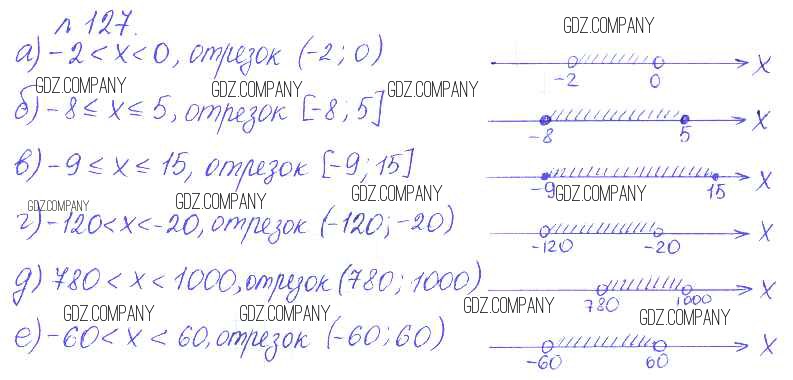 № 127.
GDZ.COMPANY
а) -2 < x < 0, отрезок (-2; 0)
-2 0 X
GDZ.COMPANY GDZ.COMPANY GDZ.COMPANY
б) -8 ≤ x ≤ 5, отрезок [-8; 5]
-8 5 X
в) -9 ≤ x ≤ 15, отрезок [-9; 15]
-9 15 X
GDZ.COMPANY GDZ.COMPANY GDZ.COMPANY GDZ.COMPANY
г) -120 < x < -20, отрезок (-120; -20)
-120 -20 X
д) 780 < x < 1000, отрезок (780; 1000)
780 1000 X
GDZ.COMPANY GDZ.COMPANY GDZ.COMPANY GDZ.COMPANY
е) -60 < x < 60, отрезок (-60; 60)
-60 60 X